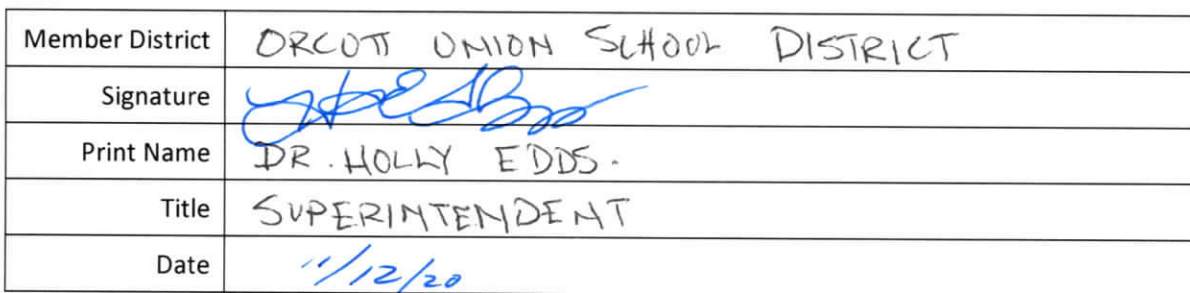 Member District ORCUTT UNION SCHOOL DISTRICT
Signature
Print Name DR. HOLLY EDDS.
Title SUPERINTENDENT
Date 11/12/20